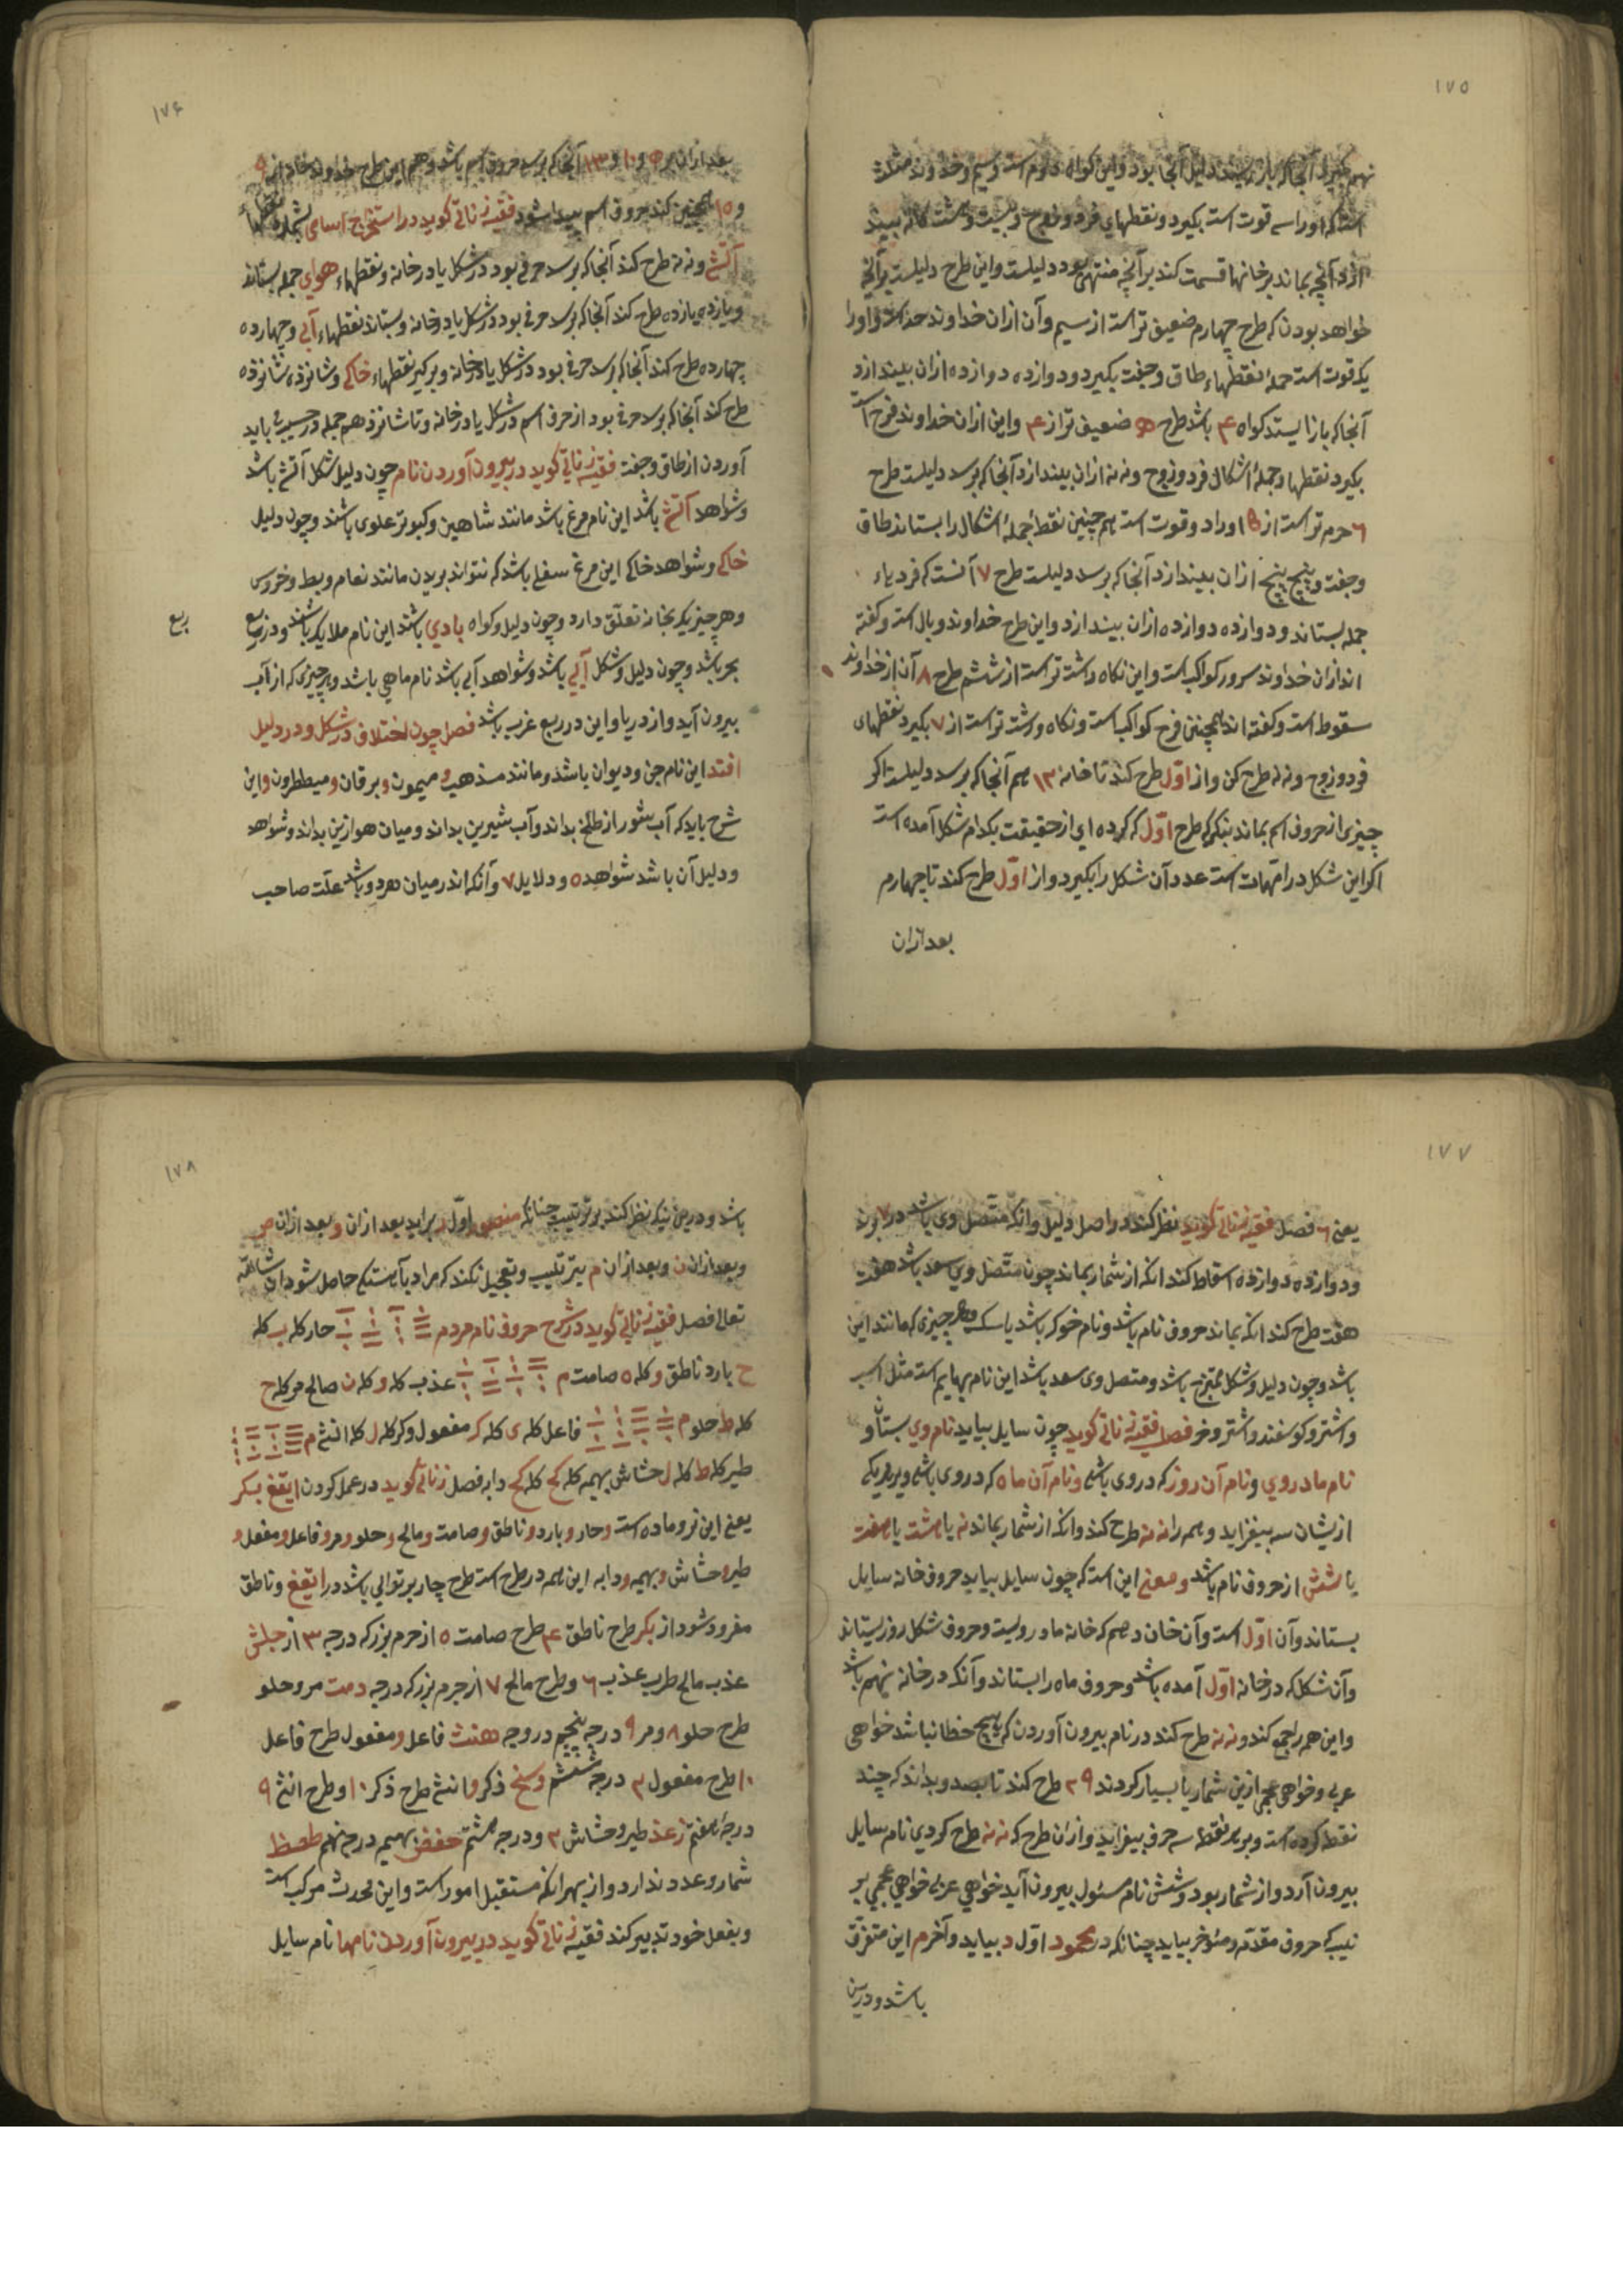 ۱۷۵
نهم بگیرد آنجا که باز ایستد دلیل آنجا بود و این گواه دوم است و سیم و خداوند مثلث
است که او را سه قوت است بگیرد و نقطهای فرد و زوج و بیست و هشت کانه ببیند
ازو آنچه بماند بر خانها قسمت کند بر آنچه منتهی بود دلیلست و این طرح دلیلست بر آنچه
خواهد بودن که طرح چهارم ضعیف تر است از سیم و آن ازان خداوند حد است و او را
یک قوت است جملهٔ نقطهاء طاق و جفت بگیرد و دوازده دوازده ازان بیندازد
آنجا که باز ایستد کواه ۴ باشد طرح ۵ ضعیف تر از ۴ و این ازان خداوند فرح است
بگیرد نقطها و جملهٔ اشکال فرد و زوج و نه نه ازان بیندازد آنجا که برسد دلیلست طرح
۶ حرم تر است از ۵ او را دو قوت است هم چنین نقطهٔ جملهٔ اشکال را بستاند طاق
و جفت و پنج پنج ازان بیندازد آنجا که برسد دلیلست طرح ۷ آنست که فردیاء
جمله بستاند و دوازده دوازده ازان بیندازد و این طرح خداوند وبال است و کفته
اند ازان خداوند سرور کواکب است و این نکاه داشته تر است از ششم طرح ۸ آن از خداوند
سقوط است و کفته اند همچنین فرح کواکب است و نکاه داشته تر است از ۷ بگیرد نقطهای
فرد و زوج و نه نه طرح کن و از اوّل طرح کند تا خانه ۱۳ هم آنجا که برسد دلیلست اکر
چیزی از حروف اسم بماند بنکر که طرح اوّل که کرده ای از حقیقت بکدام شکل آمده است
اکر این شکل در امّهات است عدد آن شکل را بگیرد و از اوّل طرح کند تا چهارم
بعد ازان
۱۷۶
بعد ازان بر ۵ و ۱۰ و ۱۳ آنجا که برسد حروف اسم باشد و هم این طرح خداوند خانه از ۵
و ۱۵ همچنین کند حروف اسم پیدا شود فقیه زناتی کوید در استخراج اسامی بشمارد نقطهاء
آتشی و نه نه طرح کند آنجا که برسد حرفی بود در شکل یا در خانه و نقطهاء هوای جمله بستاند
و یازده یازده طرح کند آنجا که برسد حرفی بود در شکل یا در خانه و بستاند نقطهاء آبی و چهارده
چهارده طرح کند آنجا که برسد حرفی بود در شکل یا در خانه و برکیر نقطهاء خاکی و شانزده شانزده
طرح کند آنجا که برسد حرفی بود از حرف اسم در شکل یا در خانه و تا شانزدهم جمله در حسیب باید
آوردن از طاق و جفت فقیه زناتی کوید در بیرون آوردن نام چون دلیل شکل آتشی باشد
و شواهد آتشی باشد این نام مرغ باشد مانند شاهین و کبوتر علوی باشند و چون دلیل
خاکی و شواهد خاکی این مرغ سفلی باشد که نتواند پریدن مانند نعام و بط و خروس
و هر چیز یکه بخانه تعلّق دارد و چون دلیل و کواه بادی باشند این نام ملایکه باشد و در ربیع
ربع
بحر باشد و چون دلیل و شکل آبی باشد و شواهد آبی باشد نام ماهی باشد و هر چیزی که از آب
بیرون آید و از دریا و این در ربع غرب باشد فصل چون اختلاف در شکل و در دلیل
افتد این نام جن و دیوان باشد و مانند مذهب و میمون و برقان و میططرون و این
شرح باید که آب شور از طلخ بداند و آب شیرین بداند و میان هوا زین بداند و شواهد
و دلیل آن باشد شواهد ۵ و دلایل ۷ و آنکه اندر میان هر دو باشد علّت صاحب
۱۷۷
یعنی ۶ فصل فقیه زناتی کوید نظر کند در اصل دلیل و آنکه متّصل وی باشد در ۷ وند
و دوازده دوازده اسقاط کند انکه از شمار بماند چون متّصل وی سعد باشد هفت
هفت طرح کند انکه بماند حروف نام باشد و نام خوک باشد یا سک و هر چیزی که مانند این
باشد و چون دلیل و شکل ممتزج باشد و متصل وی سعد باشد این نام بهایم است مثل اسب
و اشتر و کوسفند و اشتر و خر فصل فقیه زناتی کوید چون سایل بیاید نام وی بستان و
نام مادر وی و نام آن روز که در وی باشی و نام آن ماه که در وی باشی و بر هر یکی
ازیشان سه بیفزاید و همه را نه نه طرح کند و انکه از شمار بماند نه یا هشت یا هفت
یا شش از حروف نام باشد و معنی این است که چون سایل بیاید حروف خانه سایل
بستاند و آن اوّل است و آن خان دهم که خانه مادر ویست و حروف شکل روز بستاند
و آن شکل که در خانه اوّل آمده باشد و حروف ماه را بستاند و آنکه در خانه نهم باشد
و این همه را جمع کند و نه نه طرح کند در نام بیرون آوردن که هیچ خطا نباشد خواهی
عربی و خواهی عجمی ازین شمار یا بسیار کردند ۲۹ طرح کند تا بصد و بداند که چند
نقطه کرده است و بر هر نقطه سه حرف بیفزاید و ازان طرح که نه نه طرح کردی نام سایل
بیرون آرد و از شمار بود و شش نام مسئول بیرون آید خواهی عربی خواهی عجمی بر
نیب که حروف مقدّم و مئوخر بیاید چنانکه در محمود اوّل د بیاید و آخر م این متفرّق
باشد و درین
۱۷۸
باشد و درین نیک نظر کند بر ترتیب چنانکه منصور اوّل ر براید بعد ازان و بعد ازان ص
و بعد ازان ن و بعد ازان م بترتیب و تعجیل نکند که مراد بآهستکی حاصل شود ان شاء الله
تعالی فصل فقیه زناتی کوید در شرح حروف نام مردم حار کله ب کله
ح بارد ناطق و کله ه صامت م عذب کله و کله ن صالح مر کله ح
کله ط حلو م فاعل کله ی کله ک مفعول و کر کله ل کله انثی م
طیر کله ط کله ل حشاش بهیمه کله کح کله کح دابه فصل زناتی کوید در عمل کردن ایقغ بکر
یعنی این نر و ماده است و حار و بارد و ناطق و صامت و مالح و حلو و مر و فاعل و مفعل و
طیر و حشاش و بهیمه و دابه این همه در طرح است طرح چار بر توالی باشد در ایقغ و ناطق
مفرود شود از بکر طرح ناطق ۴ طرح صامت ۵ از حرم بزرکه درجه ۳ از جلش
عذب مالح طرب عذب ۶ و طرح مالح ۷ از حرم بزرکه درجه دمت مر و حلو
طرح حلو ۸ و مر ۹ درجه پنجم در وجه هنث فاعل و مفعول طرح فاعل
۱۰ طرح مفعول ۳ درجه ششم وسخ ذکر و انثی طرح ذکر ۱۰ و طرح انثی ۹
درجهٔ هفتم زعذ طیر و حشاش ۳ و درجه هشتم حفض بهیم درجه نهم طصظ
شمار و عدد ندارد و از بهر انکه مستقبل امور است و این محدث مرکب است
و بفعل خود تدبیر کند فقیه زناتی کوید در بیرون آوردن نامها نام سایل